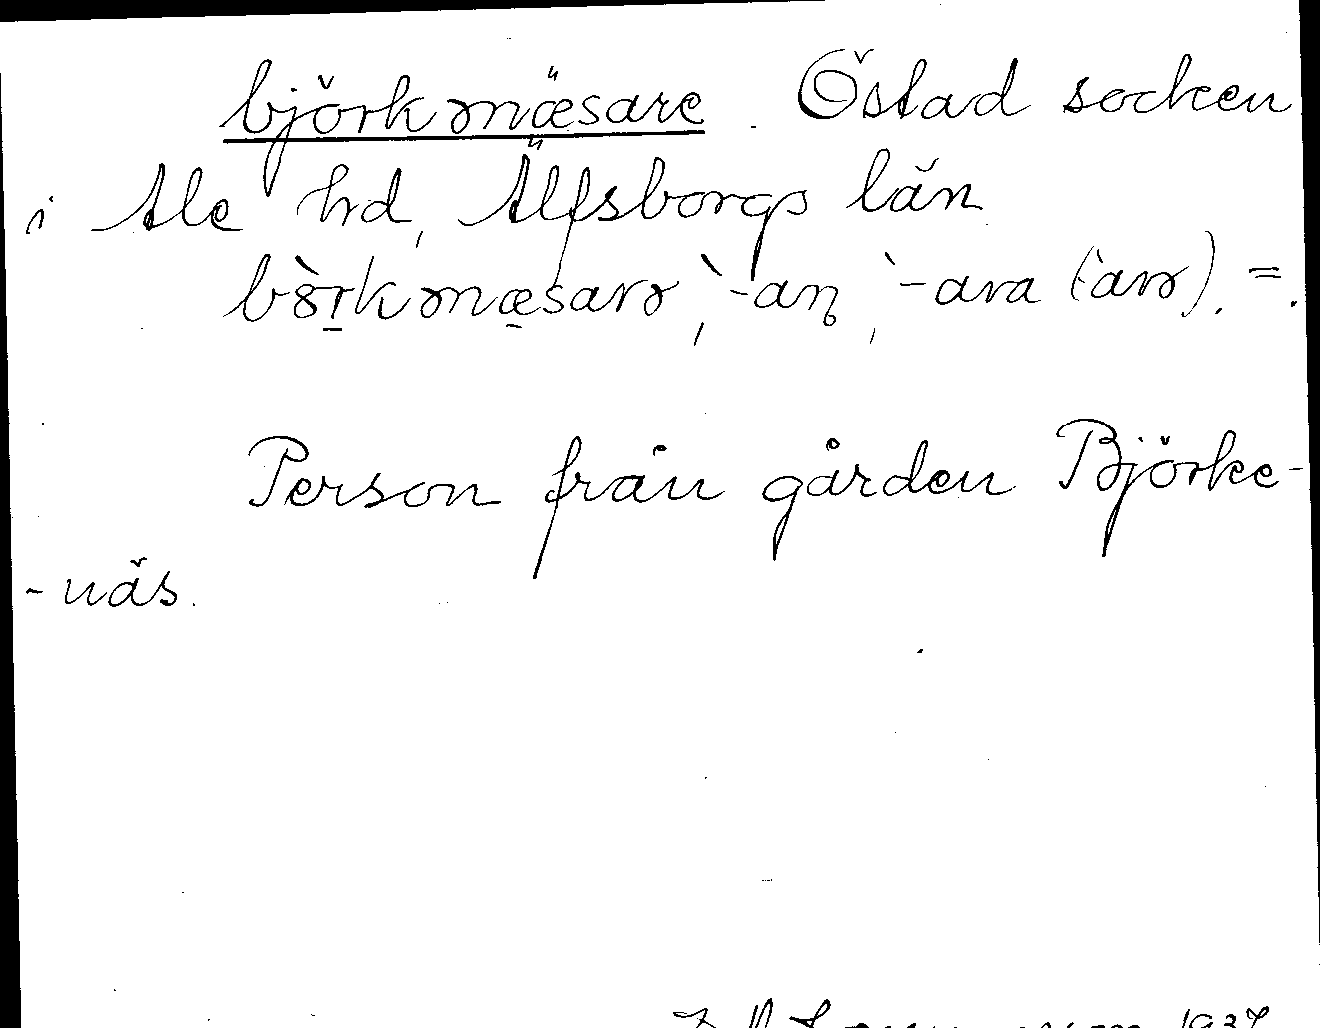 björkənæ̈sare. Östad socken
i Ale hd, Älfsborgs län
bö̀rkənæsarə, `-an, `-ara (`arə). =.
Person från gården Björke-
-näs.
1937